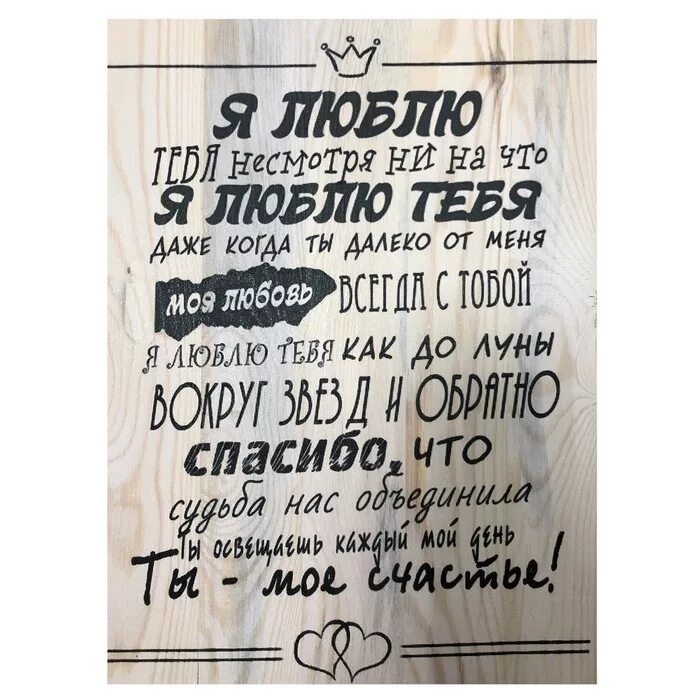 Я ЛЮБЛЮ
ТЕБЯ Несмотря НИ На что
Я ЛЮБЛЮ ТЕБЯ
ДАЖЕ КОГДА ТЫ ДАЛЕКО ОТ МЕНЯ
моя любовь ВСЕГДА С ТОБОЙ
Я ЛЮБЛЮ ТЕБЯ КАК ДО ЛУНЫ
ВОКРУГ ЗВЕЗД И ОБРАТНО
спасибо, что
судьба нас объединила
Ты освещаешь каждый мой день
Ты - мое счастье!